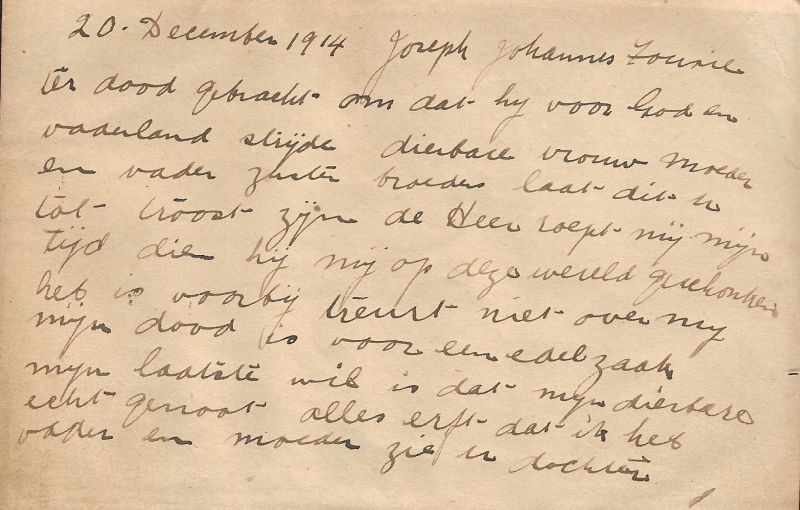 20. December 1914 Joseph Johannes Fourie
ter dood gebracht om dat hy voor God en
vaderland strijde dierbare vrouw moeder
en vader zuster broeders laat dit u
tot troost zijn de Heer roept mij mijn
tijd dien hij mij op deze wereld geschonken
het is voorbij treurt niet over my
mijn dood is voor een edel zaak
mijn laatste wil is dat mijn dierbare
echt genoot alles erft dat ik heb
vader en moeder zie u dochter